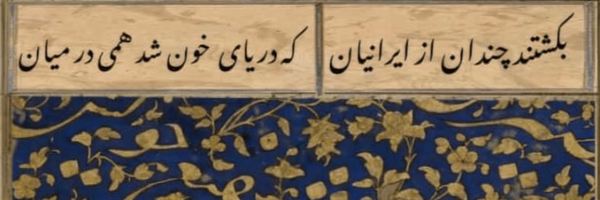 بکشتند چندان از ایرانیان که دریای خون شد همی در میان